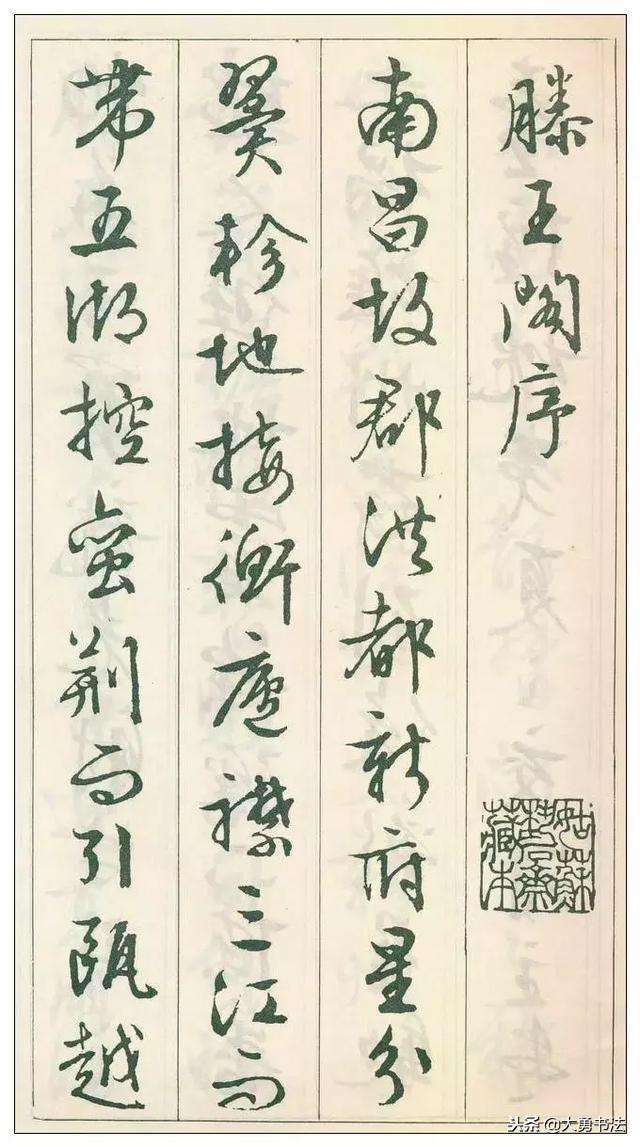 滕王閣序
姑蘇
齋
藏本
南昌故郡洪都新府星分
翼軫地接衡廬襟三江而
帶五湖控蛮荊而引甌越
头条 @大勇书法